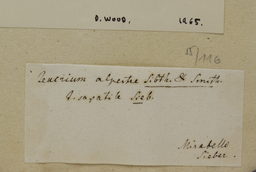 D. WOOD. 1965.
15/116
Teucrium alpestre Sibth. & Smith.
Sieb.
Mirabello
Sieber.